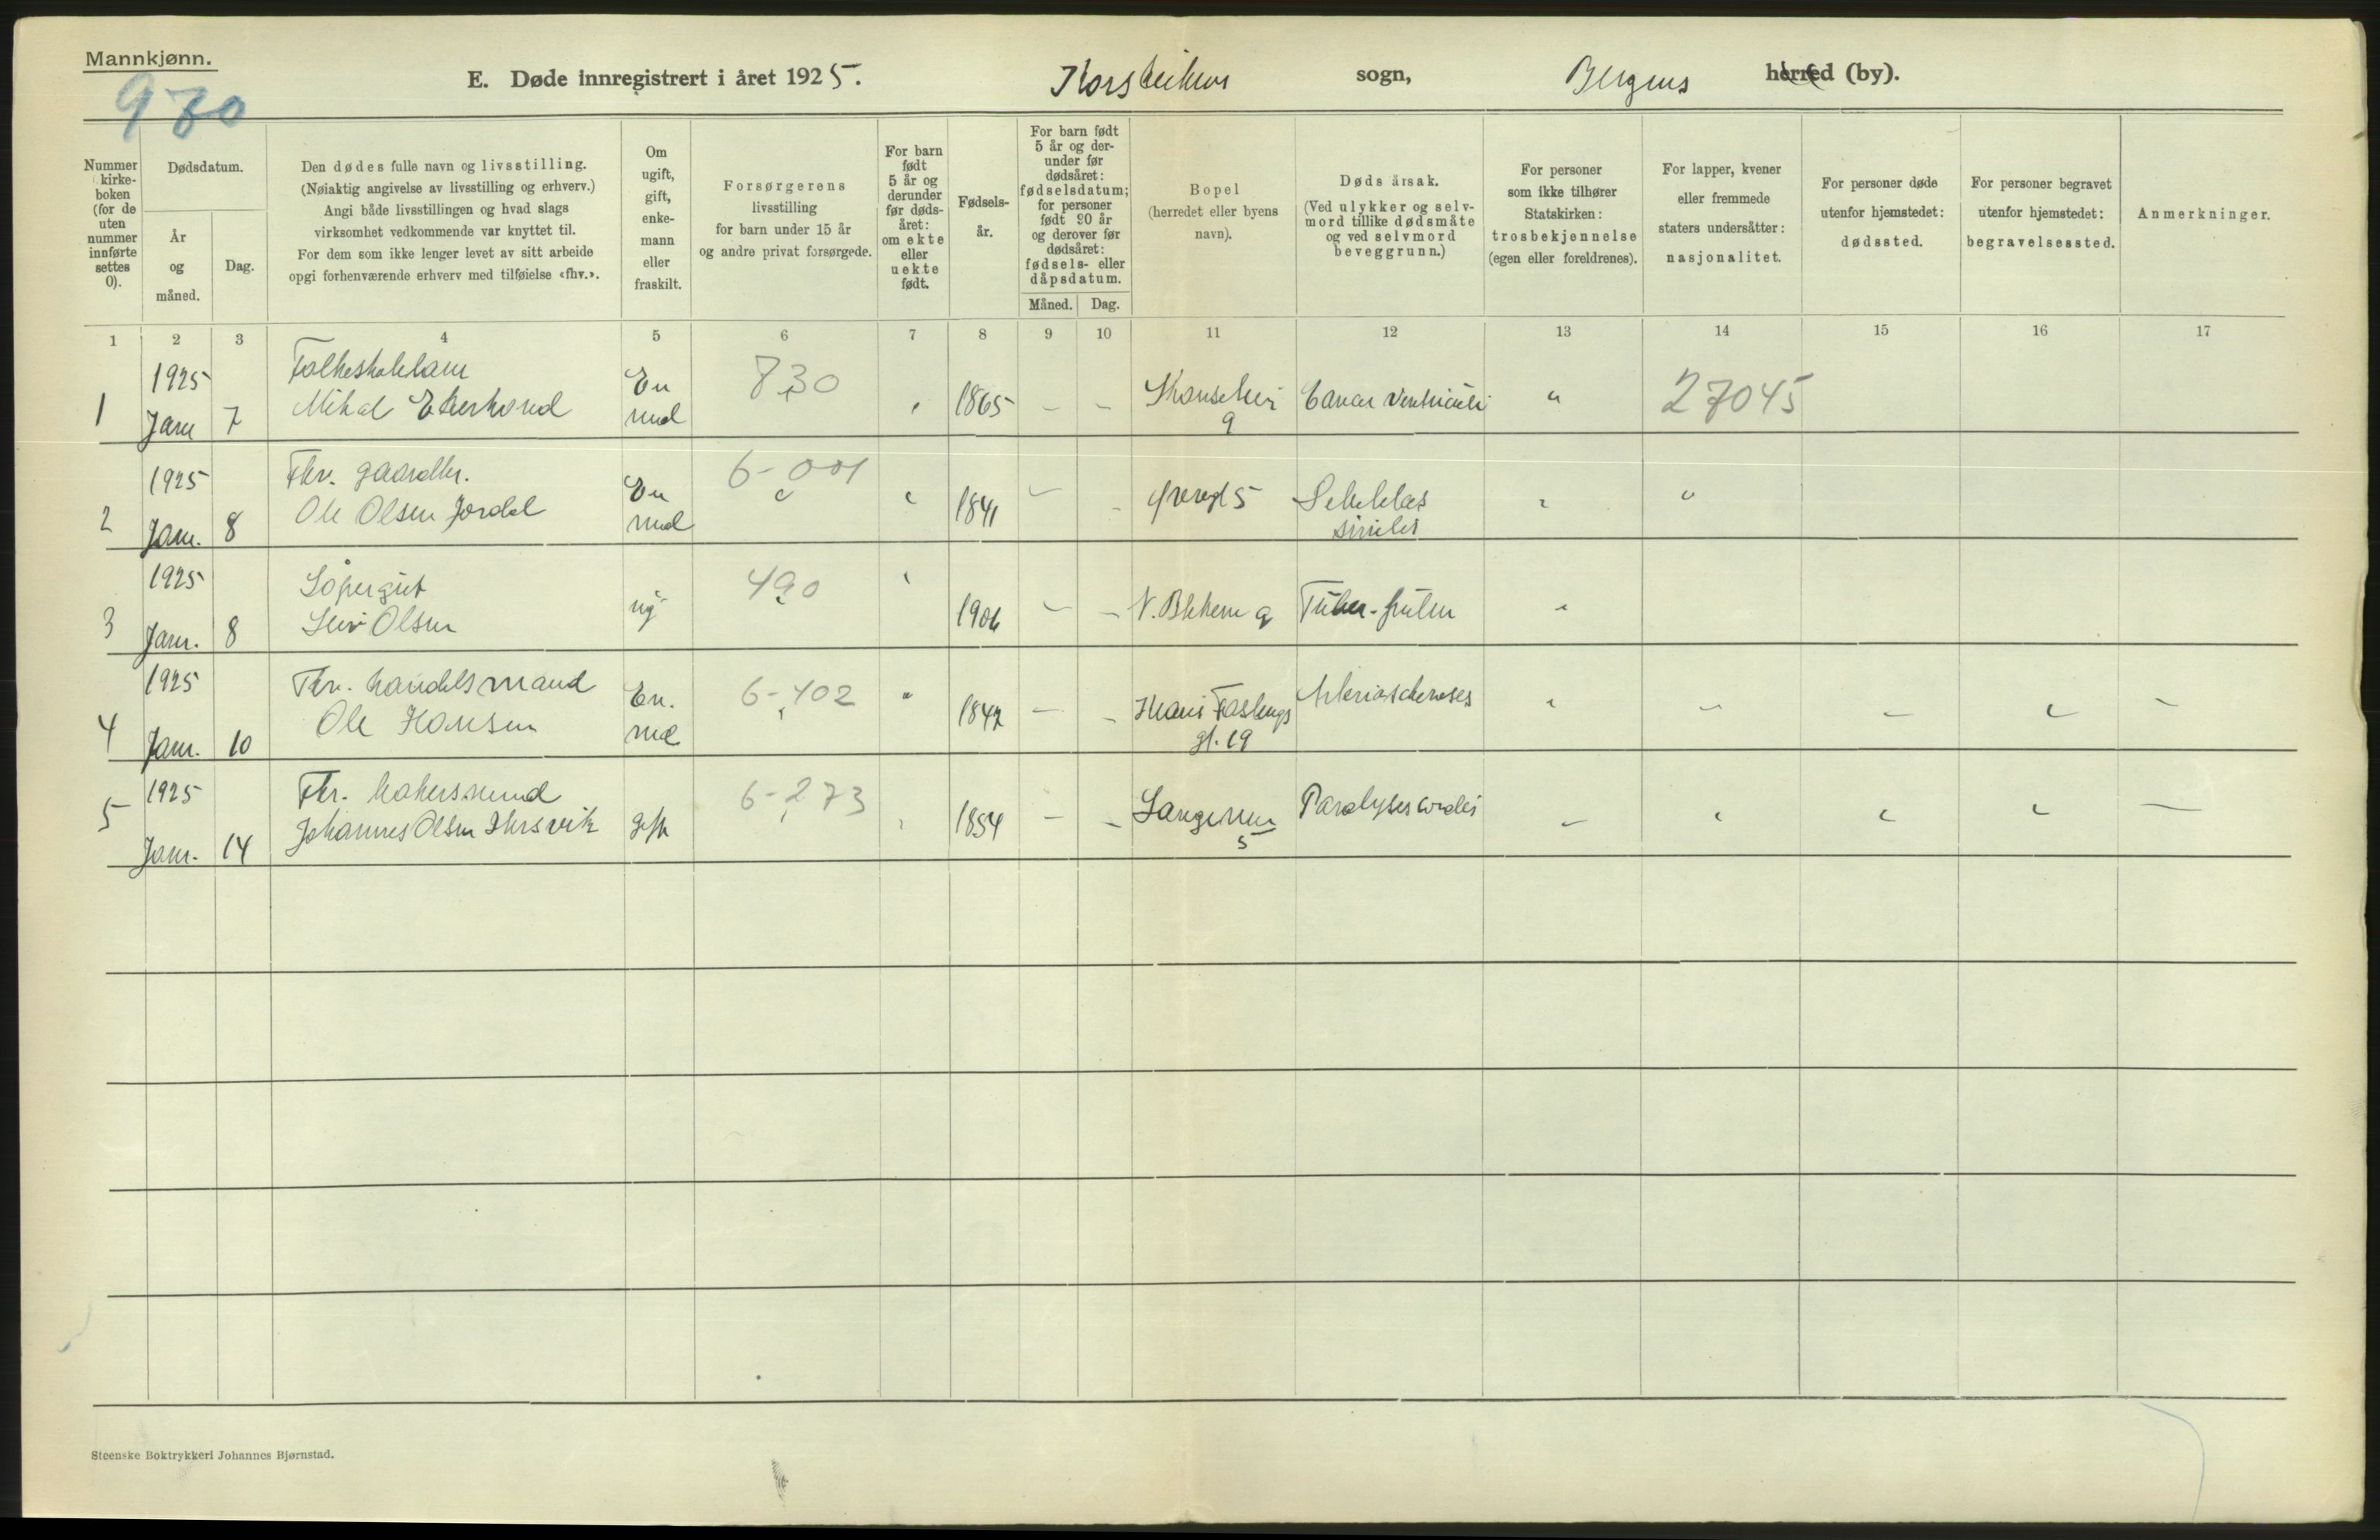 Mannkjønn.
970
E. Døde innregistrert i året 1925. Korskirken sogn, Bergens herred (by).
Nummer
kirke-
boken
(for de
uten
nummer
innførte
settes
0).
Dødsdatum.
År
og
måned.
Dag.
Den dødes fulle navn og livsstilling.
(Nøiaktig angivelse av livsstilling og erhverv.)
Angi både livsstillingen og hvad slags
virksomhet vedkommende var knyttet til.
For dem som ikke lenger levet av sitt arbeide
opgi forhenværende erhverv med tilføielse «fhv.».
Om
ugift,
gift,
enke-
mann
eller
fraskilt.
Forsørgerens
livsstilling
for barn under 15 år
og andre privat forsørgede.
For barn
født
5 år og
derunder
før døds-
året:
om ekte
eller
uekte
født.
Fødsels-
år.
For barn født
5 år og der-
under før
dødsåret:
fødselsdatum;
for personer
født 90 år
og derover før
dødsåret:
fødsels- eller
dåpsdatum.
Måned. Dag.
Bopel
(herredet eller byens
navn).
Døds årsak.
(Ved ulykker og selv-
mord tillike dødsmåte
og ved selvmord
beveggrunn.)
For personer
som ikke tilhører
Statskirken:
trosbekjennelse
(egen eller foreldrenes).
For lapper, kvener
eller fremmede
staters undersåtter:
nasjonalitet.
For personer døde
utenfor hjemstedet:
dødssted.
For personer begravet
utenfor hjemstedet:
begravelsessted.
Anmerkninger.
1 2 3 4 5 6 7 8 9 10 11 12 13 14 15 16 17
1925 En 830
1 Jan 7 Mikal mnd " 1865 - - 9 Cancer Ventriculi " 27045
1925 Fhv. gaardbr. 6-001
2 Jan. 8 Ole Olsen Jordal En mnd " 1841 - - 5 "
1925 490
3 Jan. 8 Olsen ug - - 9 "
1925 Fhv. handelsmand En. 6-402
4 Jan. 10 Ole Hansen " - - gt. 19 " - - " -
1925 Fhv. 6-273
5 Jan. 14 Johannes Olsen gift " 1854 - - 5 Paralysis cordis - " " " -
Steenske Boktrykkeri Johannes Bjørnstad.